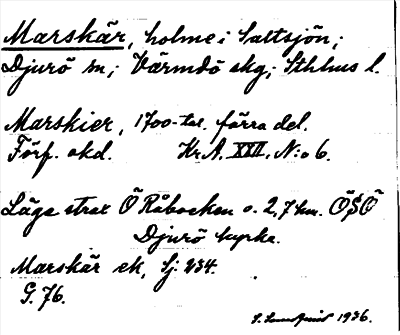 Marskär, holme i Saltsjön;
Djurö sn; Värmdö skg; Sthlms l.
Marskier, 1700-tal. förra del.
Förf. okd. Kr A. XVII. N:o 6.
Läge strax Ö Råbocken o. 2,7 km. ÖSÖ
Djurö kyrka.
Marskär ek, Sj. 234.
G. 76.
S. Lundquist 1936.